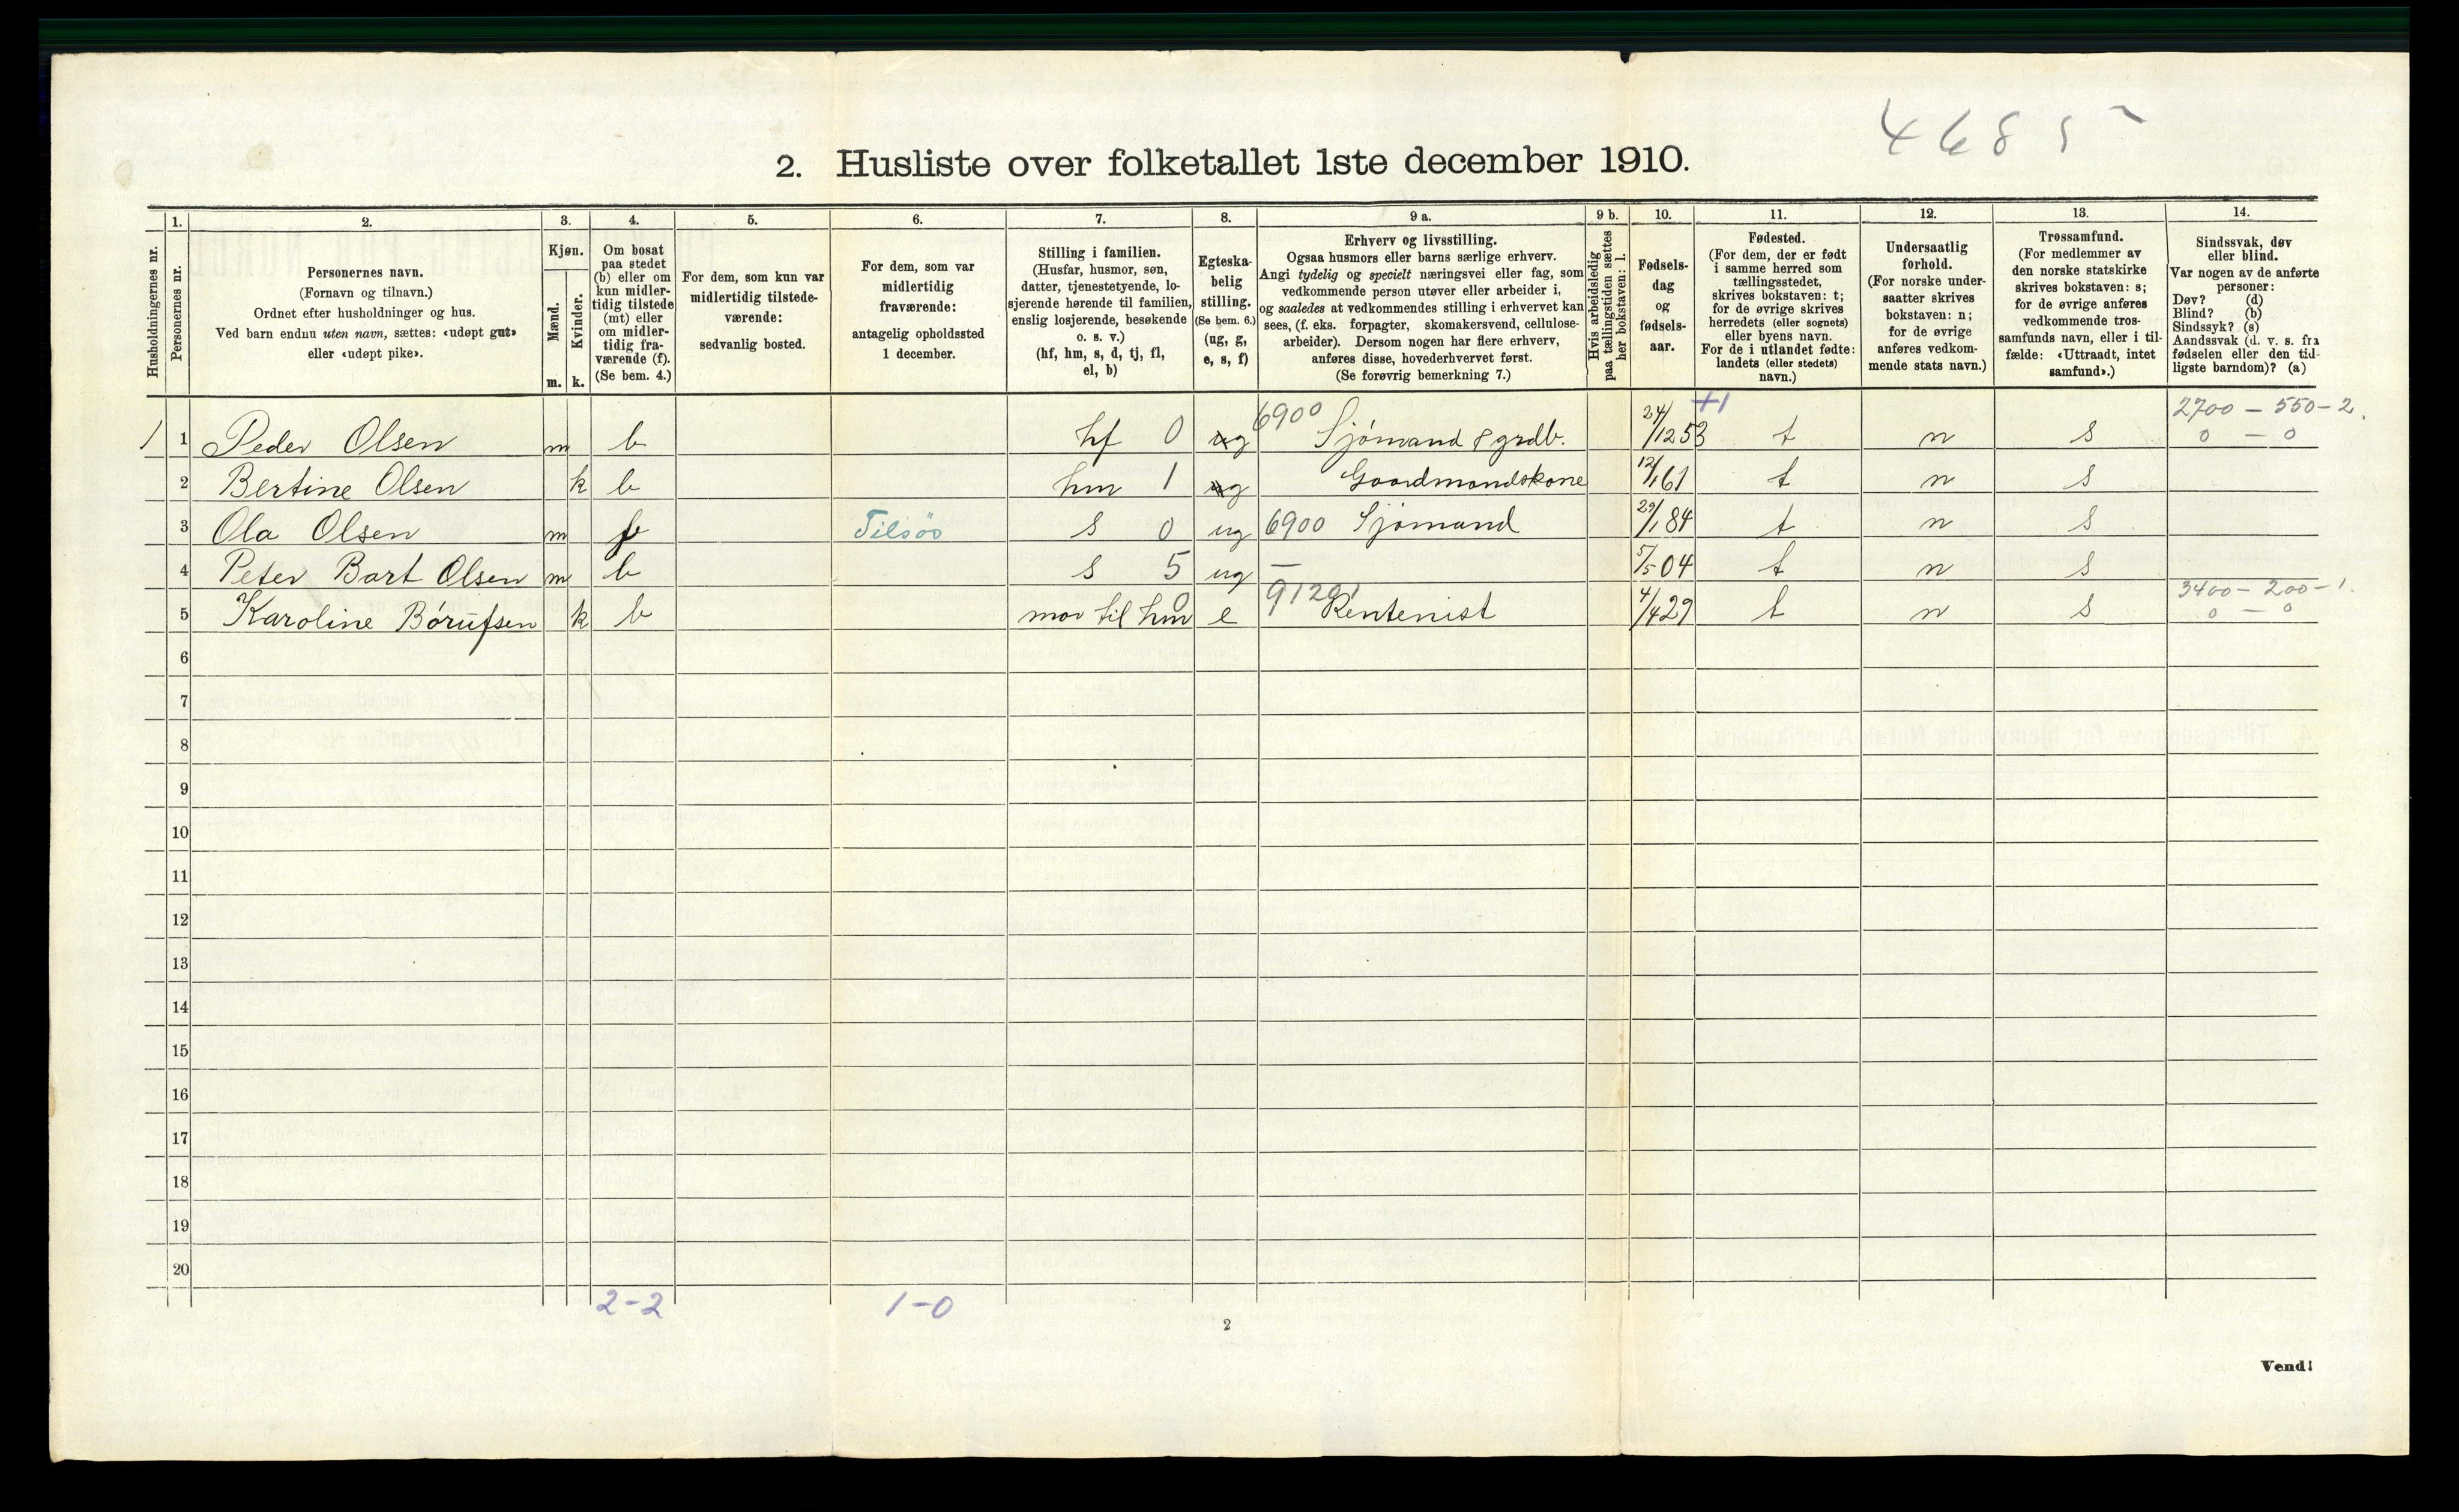 4685
2. Husliste over folketallet 1ste december 1910.
Husholdningernes nr.
1.
Personernes nr.
2.
Personernes navn.
(Fornavn og tilnavn.)
Ordnet efter husholdninger og hus.
Ved barn endnu uten navn, sættes: «udøpt gut»
eller «udøpt pike».
3.
Kjøn.
Mænd.
Kvinder.
m. k.
4.
Om bosat
paa stedet
(b) eller om
kun midler-
tidig tilstede
(mt) eller
om midler-
tidig fra-
værende (f).
(Se bem. 4.)
5.
For dem, som kun var
midlertidig tilstede-
værende:
sedvanlig bosted.
6.
For dem, som var
midlertidig
fraværende:
antagelig opholdssted
1 december.
7.
Stilling i familien.
(Husfar, husmor, søn,
datter, tjenestetyende, lo-
sjerende hørende til familien,
enslig losjerende, besøkende
o. s. v.)
(hf, hm, s, d, tj, fl,
el, b)
8.
Egteska-
belig
stilling.
(Se bem. 6.)
(ug, g,
e, s, f)
9 a.
Erhverv og livsstilling.
Ogsaa husmors eller barns særlige erhverv.
Angi tydelig og specielt næringsvei eller fag, som
vedkommende person utøver eller arbeider i,
og saaledes at vedkommendes stilling i erhvervet kan
sees, (f. eks. forpagter, skomakersvend, cellulose-
arbeider). Dersom nogen har flere erhverv,
anføres disse, hovederhvervet først.
(Se forøvrig bemerkning 7.)
9 b.
Hvis arbeidsledig
paa tællingstiden sættes
her bokstaven: l.
10.
Fødsels-
dag
og
fødsels-
aar.
11.
Fødested.
(For dem, der er født
i samme herred som
tællingsstedet,
skrives bokstaven: t;
for de øvrige skrives
herredets (eller sognets)
eller byens navn.
For de i utlandet fødte:
landets (eller stedets)
navn.)
12.
Undersaatlig
forhold.
(For norske under-
saatter skrives
bokstaven: n;
for de øvrige
anføres vedkom-
mende stats navn.)
13.
Trossamfund.
(For medlemmer av
den norske statskirke
skrives bokstaven: s;
for de øvrige anføres
vedkommende tros-
samfunds navn, eller i til-
fælde: «Uttraadt, intet
samfund».)
14.
Sindssvak, døv
eller blind.
Var nogen av de anførte
personer:
Døv? (d)
Blind? (b)
Sindssyk? (s)
Aandssvak (d. v. s. fra
fødselen eller den tid-
ligste barndom)? (a)
6900 +1 2700 - 550 - 2.
1 1 Peder Olsen m b hf 0 g Sjómand & grdb. 24/12 53 t n s 0 - 0
2 Bertine Olsen k b hm 1 g Gaardmandskone 12/1 61 t n s
3 Ola Olsen m f Tilsös s 0 ug 6900 Sjómand 29/1 84 t n s
4 Peter Bart Olsen m b s 5 ug — 5/5 04 t n s
3400 - 200 - 1.
5 Karoline Börufsen k b mor til hm 0 e 91201 Rentenist 4/4 29 t n s 0 - 0
6
7
8
9
10
11
12
13
14
15
16
17
18
19
20
2-2 1-0
2
Vend!